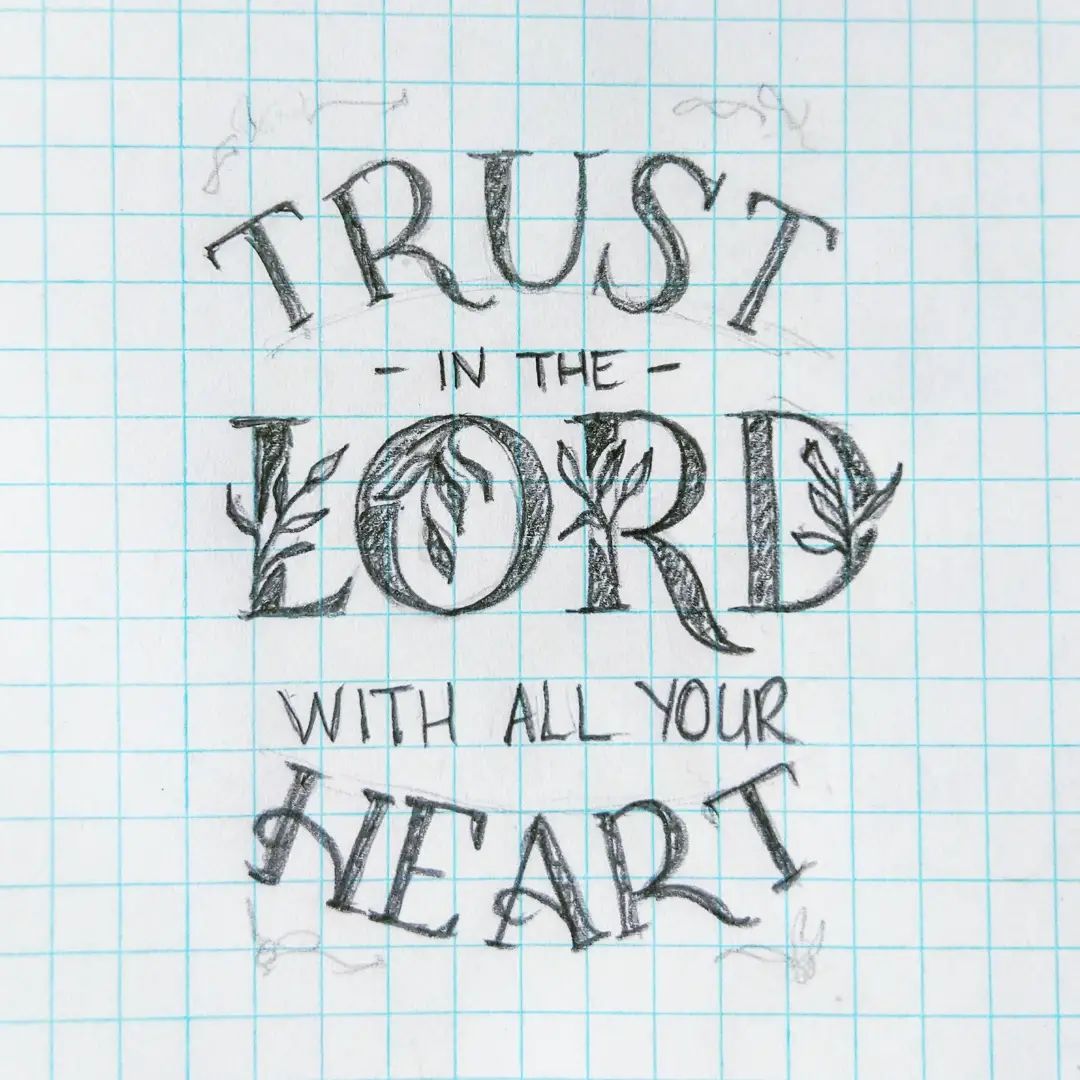 TRUST
- IN THE -
LORD
WITH ALL YOUR
HEART